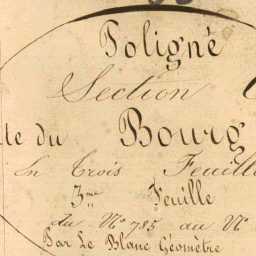 Poligné
Section
te du Bourg
En Trois Feuill
3me Feuille
du N° 785 au N°
Par Le Blanc Géometre